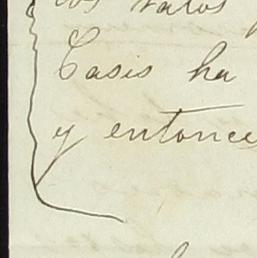 los ratos
Casis ha
y entonce